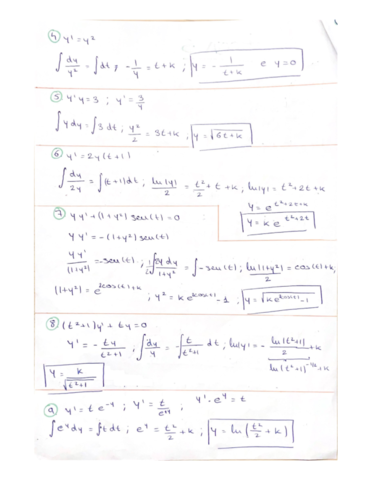 ④ y' = y²
∫ dy/y² = ∫ dt; -1/y = t + k ; y = - 1/(t+k) e y = 0
⑤ y'y = 3 ; y' = 3/y
∫ y dy = ∫ 3 dt ; y²/2 = 3t + k ; y = √(6t + k)
⑥ y' = 2y(t+1)
∫ dy/2y = ∫ (t+1) dt ; ln|y|/2 = t²/2 + t + k ; ln|y| = t² + 2t + k
y = e^(t²+2t+k)
y = k e^(t²+2t)
⑦ y y' + (1+y²) sen(t) = 0
y y' = -(1+y²) sen(t)
y y'/(1+y²) = -sen(t) ; ½ ∫ 2y dy/(1+y²) = ∫ -sen(t) ; ln(1+y²)/2 = cos(t) + k ;
(1+y²) = e^(2cos(t)+k) ; y² = k e^(2cos(t)) - 1 ; y = √(k e^(2cos(t)) - 1)
⑧ (t²+1) y' + ty = 0
y' = - ty/(t²+1) ; ∫ dy/y = -∫ t/(t²+1) dt ; ln|y| = - ln|t²+1|/2 + k
ln|t²+1|^(-1/2) + k
y = k/√(t²+1)
⑨ y' = t e^(-y) ; y' = t/e^y ; y' · e^y = t
∫ e^y dy = ∫ t dt ; e^y = t²/2 + k ; y = ln(t²/2 + k)